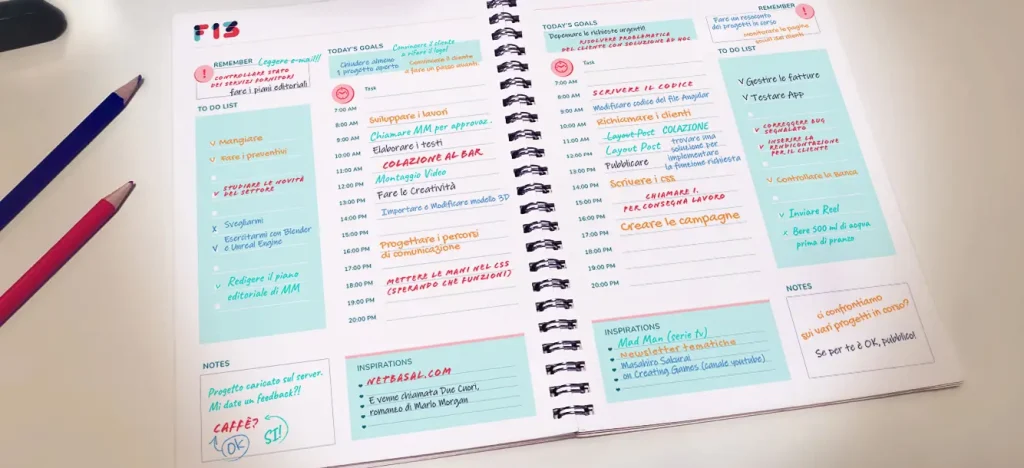 F13
REMEMBER Leggere e-mail!!!
CONTROLLARE STATO
DEI SERVIZI FORNITORI
fare i piani editoriali
TO DO LIST
v Mangiare
v Fare i preventivi
v STUDIARE LE NOVITÀ
DEL SETTORE
x Svegliarmi
v Esercitarmi con Blender
e Unreal Engine
v Redigere il piano
editoriale di MM
NOTES
Progetto caricato sul server.
Mi date un feedback?!
CAFFÈ?
OK
SI!
TODAY'S GOALS
Convincere il cliente
a rifare il logo!
Chiudere almeno
1 progetto aperto
Convincere il cliente
a fare un passo avanti.
Task
7:00 AM
8:00 AM Sviluppare i lavori
9:00 AM Chiamare MM per approvaz.
10:00 AM Elaborare i testi
11:00 AM COLAZIONE AL BAR
12:00 PM Montaggio Video
13:00 PM Fare le Creatività
14:00 PM Importare e Modificare modello 3D
15:00 PM
16:00 PM Progettare i percorsi
di comunicazione
17:00 PM
18:00 PM METTERE LE MANI NEL CSS
(SPERANDO CHE FUNZIONI)
19:00 PM
20:00 PM
INSPIRATIONS
NETBASAL.COM
E venne chiamata Due Cuori,
romanzo di Marlo Morgan
TODAY'S GOALS
Dopennare le richieste urgenti!
RISOLVERE PROBLAMATICA
DEL CLIENTE CON SOLUZIONE AD HOC
Task
7:00 AM
8:00 AM SCRIVERE IL CODICE
9:00 AM Modificare codice del file Angular
10:00 AM Richiamare i clienti
11:00 AM Layout Post COLAZIONE
12:00 PM Layout Post
13:00 PM Pubblicare
trovare una
soluzione per
implementare
la funzione richiesta
14:00 PM Scrivere i CSS
15:00 PM CHIAMARE I.
PER CONSEGNA LAVORO
16:00 PM
17:00 PM Creare le campagne
18:00 PM
19:00 PM
20:00 PM
INSPIRATIONS
Mad Man (serie tv)
Newsletter tematiche
Masahiro Sakurai
on Creating Games (canale youtube)
REMEMBER
Fare un resoconto
dei progetti in corso
monitorare la pagina
social dei clienti
TO DO LIST
v Gestire le fatture
v Testare App
v CORREGGERE BUG
SEGNALATO
v INSERIRE LA
RENDICONTAZIONE
PER IL CLIENTE
v Controllare la Banca
v Inviare Reel
x Bere 500 ml di acqua
prima di pranzo
NOTES
ci confrontiamo
sui vari progetti in corso?
Se per te è OK, pubblico!